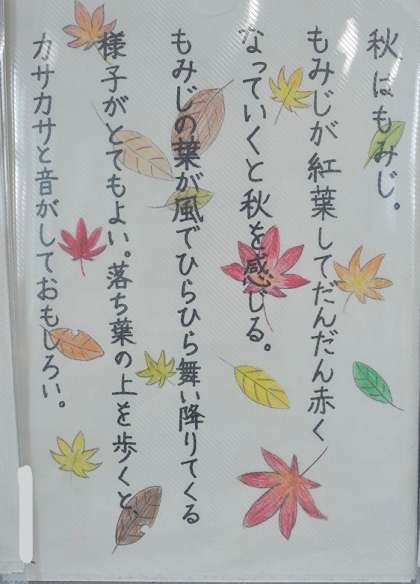 秋はもみじ。
もみじが紅葉してだんだん赤く
なっていくと秋を感じる。
もみじの葉が風でひらひら舞い降りてくる
様子がとてもよい。落ち葉の上を歩くと、
カサカサと音がしておもしろい。